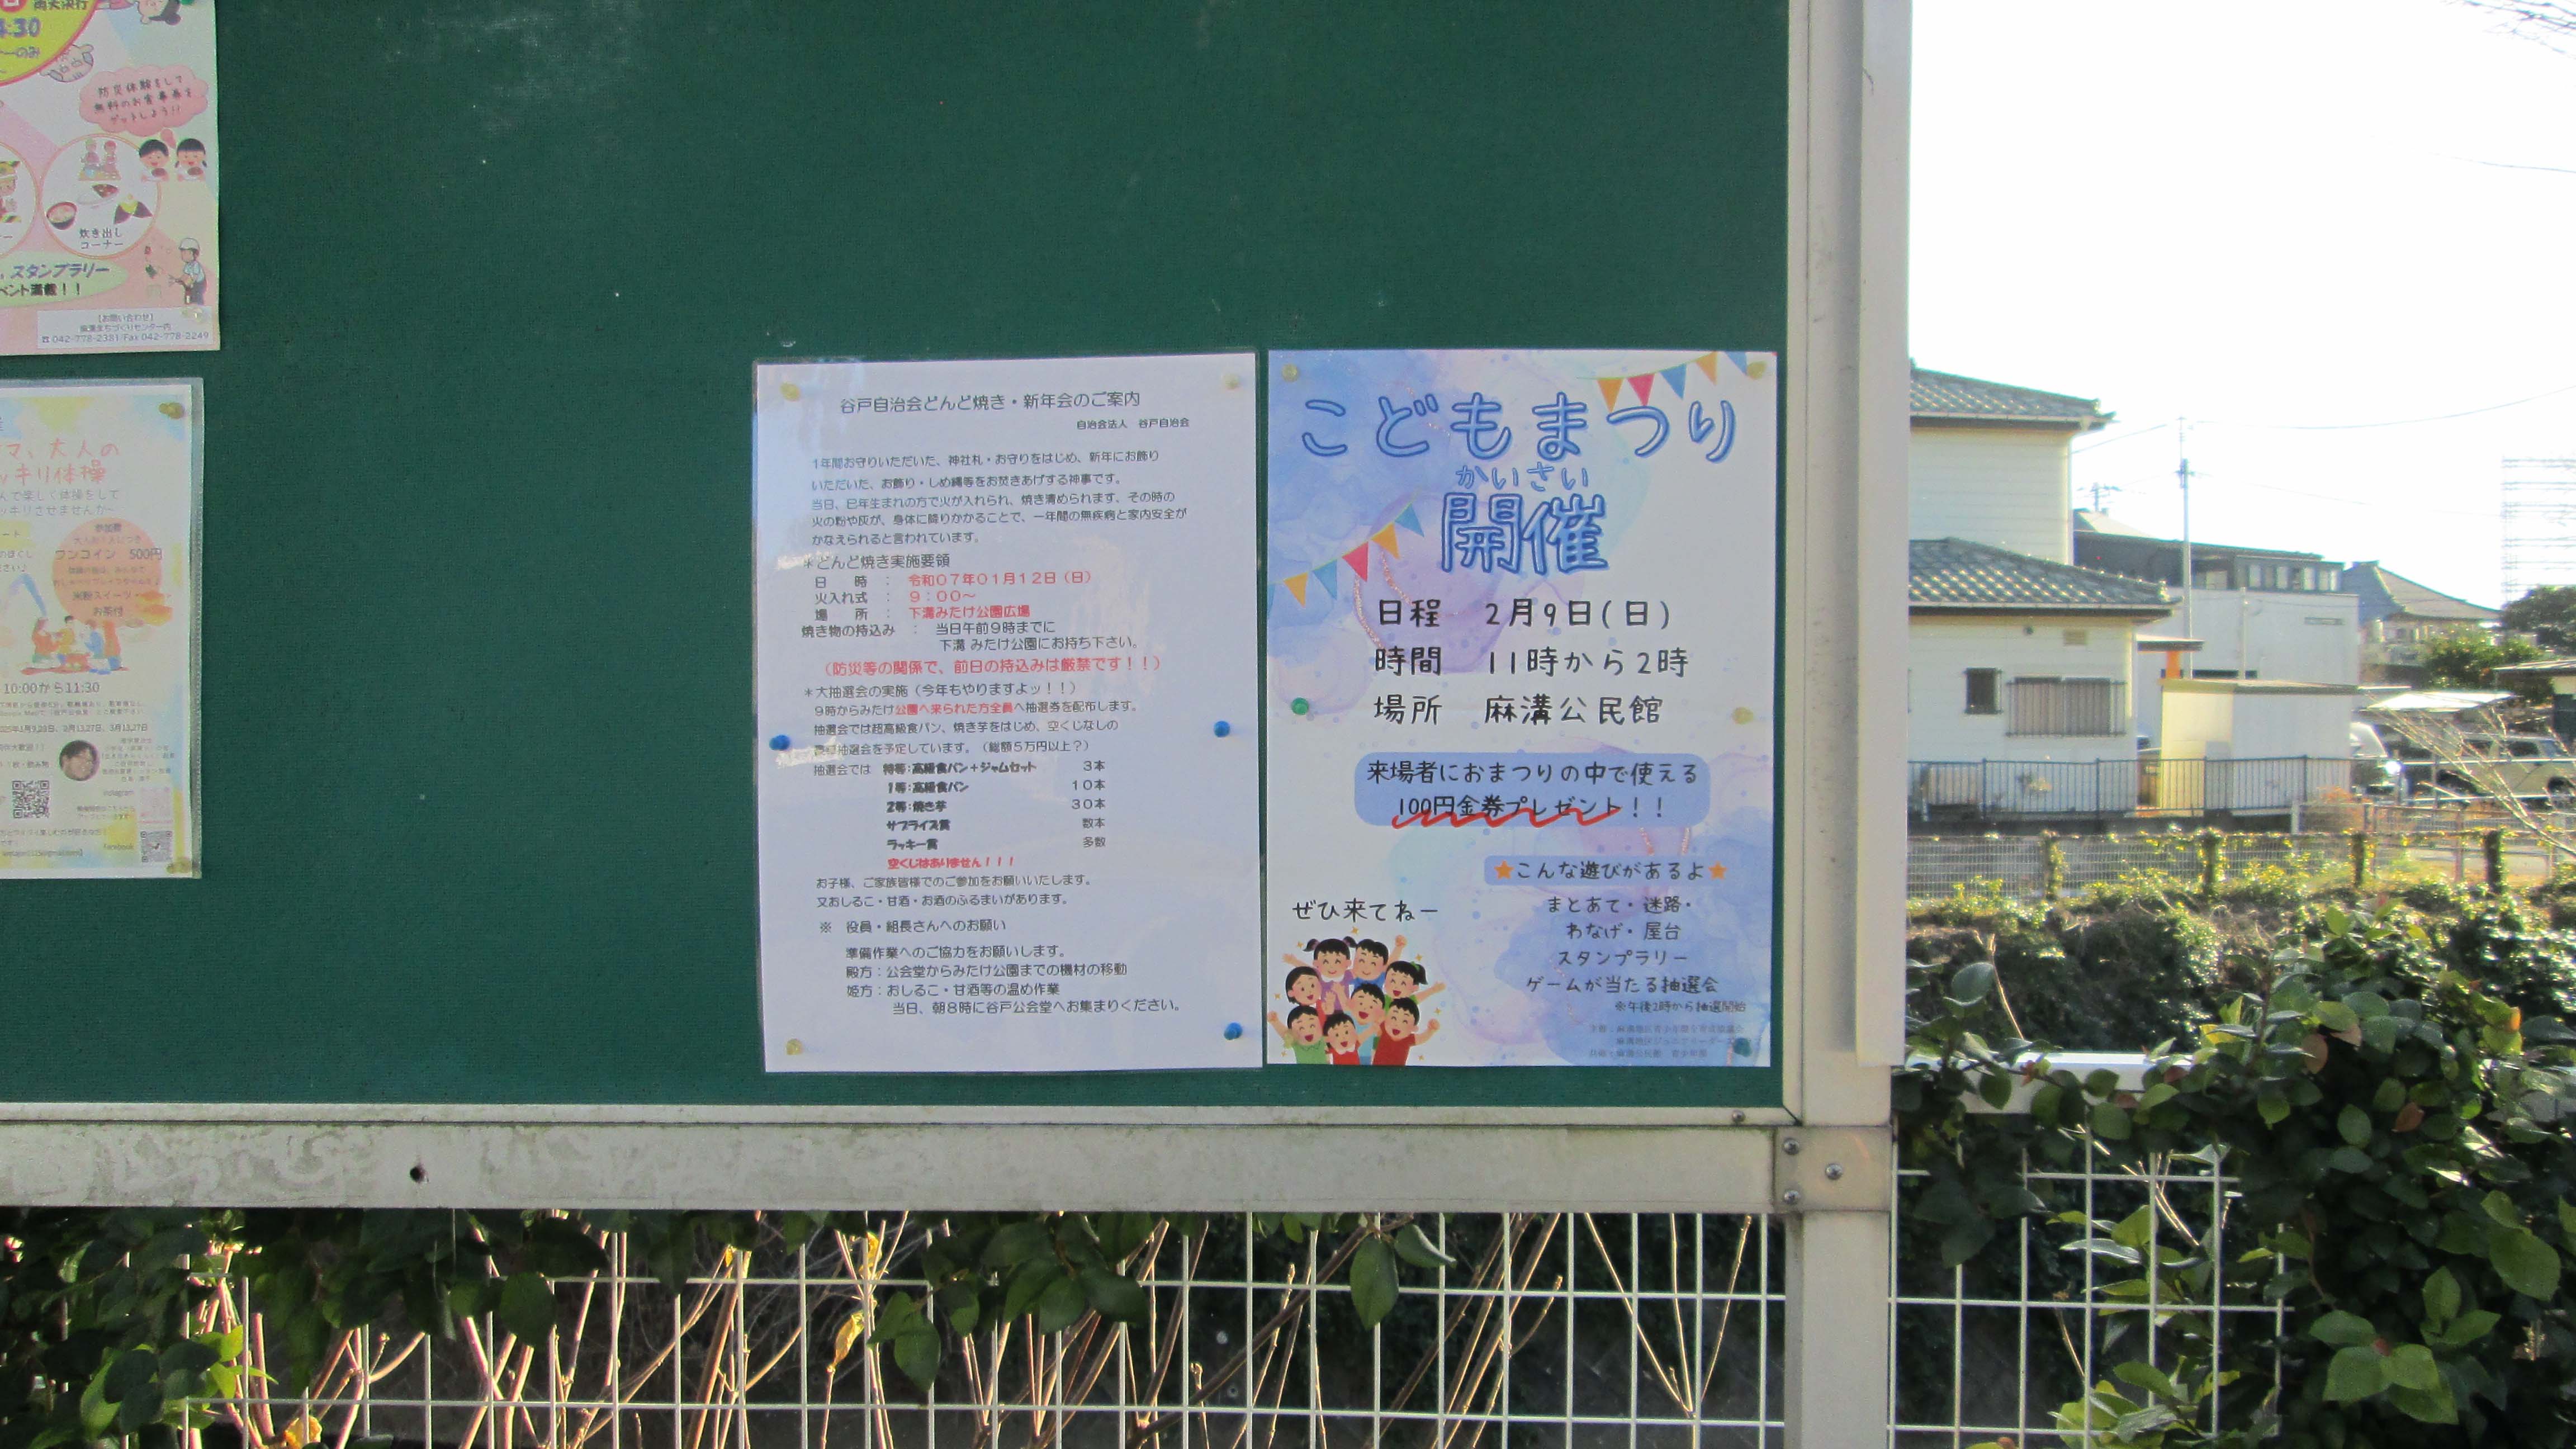 雨天決行
4:30
ナーのみ
防災体験をして
無料のお食事券を
ゲットしよう!!
炊き出し
コーナー
スタンプラリー
ベント満載！！
【お問い合わせ】
麻溝まちづくりセンター内
☎042-778-2381/Fax 042-778-2249
マ、大人の
ッキリ体操
んで楽しく体操をして
ッキリさせませんか~
参加費
ワンコイン 500円
米粉スイーツ・
お茶付
10:00から11:30
Instagram
Facebook
谷戸自治会どんど焼き・新年会のご案内
自治会法人 谷戸自治会
1年間お守りいただいた、神社札・お守りをはじめ、新年にお飾り
いただいた、お飾り・しめ縄等をお焚きあげする神事です。
当日、巳年生まれの方で火が入れられ、焼き清められます。その時の
火の粉や灰が、身体に降りかかることで、一年間の無疾病と家内安全が
かなえられると言われています。
＊どんど焼き実施要領
日　時　：　令和07年01月12日（日）
火入れ式　：　9：00～
場　所　：　下溝みたけ公園広場
焼き物の持込み　：　当日午前9時までに
下溝 みたけ公園にお持ち下さい。
（防災等の関係で、前日の持込みは厳禁です！！）
＊大抽選会の実施（今年もやりますよッ！！）
9時からみたけ公園へ来られた方全員へ抽選券を配布します。
抽選会では超高級食パン、焼き芋をはじめ、空くじなしの
豪華抽選会を予定しています。（総額５万円以上？）
抽選会では　特等：高級食パン＋ジャムセット　3本
1等：高級食パン　10本
2等：焼き芋　30本
サプライズ賞　数本
ラッキー賞　多数
空くじはありません！！！
お子様、ご家族皆様でのご参加をお願いいたします。
又おしるこ・甘酒・お酒のふるまいがあります。
※　役員・組長さんへのお願い
準備作業へのご協力をお願いします。
殿方：公会堂からみたけ公園までの機材の移動
姫方：おしるこ・甘酒等の温め作業
当日、朝８時に谷戸公会堂へお集まりください。
こどもまつり
かいさい
開催
日程　2月9日(日)
時間　11時から2時
場所　麻溝公民館
来場者におまつりの中で使える
100円金券プレゼント！！
★こんな遊びがあるよ★
ぜひ来てねー
まとあて・迷路・
わなげ・屋台
スタンプラリー
ゲームが当たる抽選会
※午後2時から抽選開始